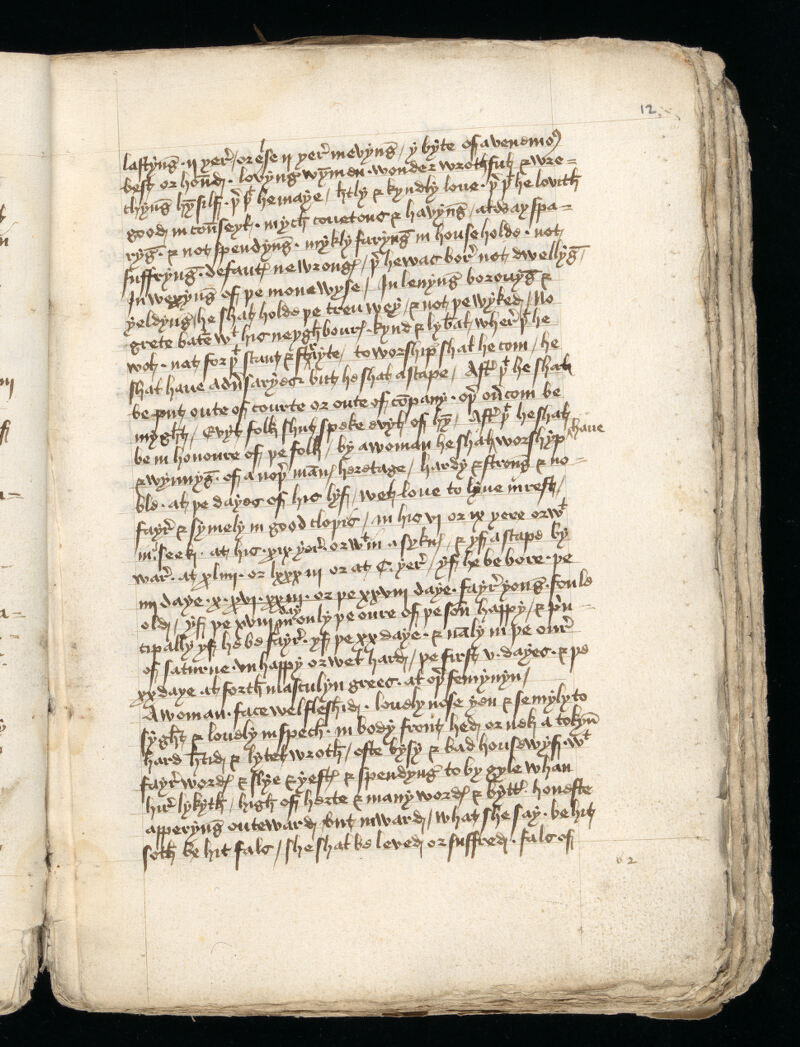 12
lastyng · ij yer / or else ij yer mevyng / þ byte of a venemos
best or hond · lovyng wymen · wonder wrothful & wre=
thyng hym silf · þt þt he maye / hertly & kyndly love · þt þt he lovith
good in counseyl · mych covetous & havyng / at oday spa=
ryng · & not spendyng · mykly faryng in householde · not
suffryng · defaute ne wronge / þer he was bor not dwellyng /
In wexyng of þe mone wyse / In lenyng borowyg &
yeldyng / he shal holde þe treu wey / & not þe wyked / No
grete bate wt his neyghbour · kynd & lyberal wher þt he
wol · nat for þt scant & strayte / to worship shal he com / he
shal have adversaryes · but he shal ascape / After þt he shal
be put oute of courte or oute of company · oper overcom be
myght / Evyl folk shul speke evyl of hym / After þt he shal
be in honoure of þe folk / by a woman he shal worshyp have
& wynnyg · of a noper mann heretage / hardy & strong & no=
ble · at þe dayes of his lyf / wel love to lyve in rest /
fayr & symely in good cloþis / in his vi or ix yere or wt
in seek · at his · xix yer · or wt in a sykn / & yf ascape by
war · at xliiii · or lxxxiii or at C · yer / yf he be bore · þe
iiii daye · x · xvi · xxiii · or þe xxviii daye · fayr yong · foule
old / yf þe xviii day in only þe oure of þe son happy / & prin=
cipally yf he be fayr · yf þe xx daye · & namly in þe our
of saturne · unhappy or wel hard / þe first v · dayes · & þe
xx daye · at forth masculyn grees · at oper femynyn /
A woman · face wel fleshid · lovely nose yen & semyly to
syght & lovely in spech · in body front hed or nek a tokyn
hard hertid & lytel wroth / ofte bysy & bad housewyf · wt
fayr word & slye & yeft & spendyng to by gyle whan
hir lykyth / high of herte & many word & bytter · honeste
apperyng outeward but inward / what she say · be hit
soth be hit fals / she shal be leved or suffred · fals of
b 2